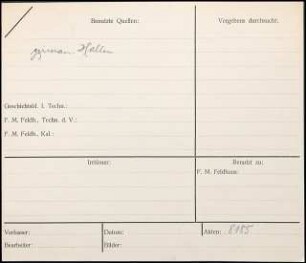 Benutzte Quellen:
Vergebens durchsucht:
Hallen
Geschichtsbl. f. Techn.:
F. M. Feldh., Techn. d. V.:
F. M. Feldh., Kal.:
Irrtümer:
Benutzt zu:
F. M. Feldhaus:
Verfasser:
Datum:
Akten: 8185
Bearbeiter:
Bilder: